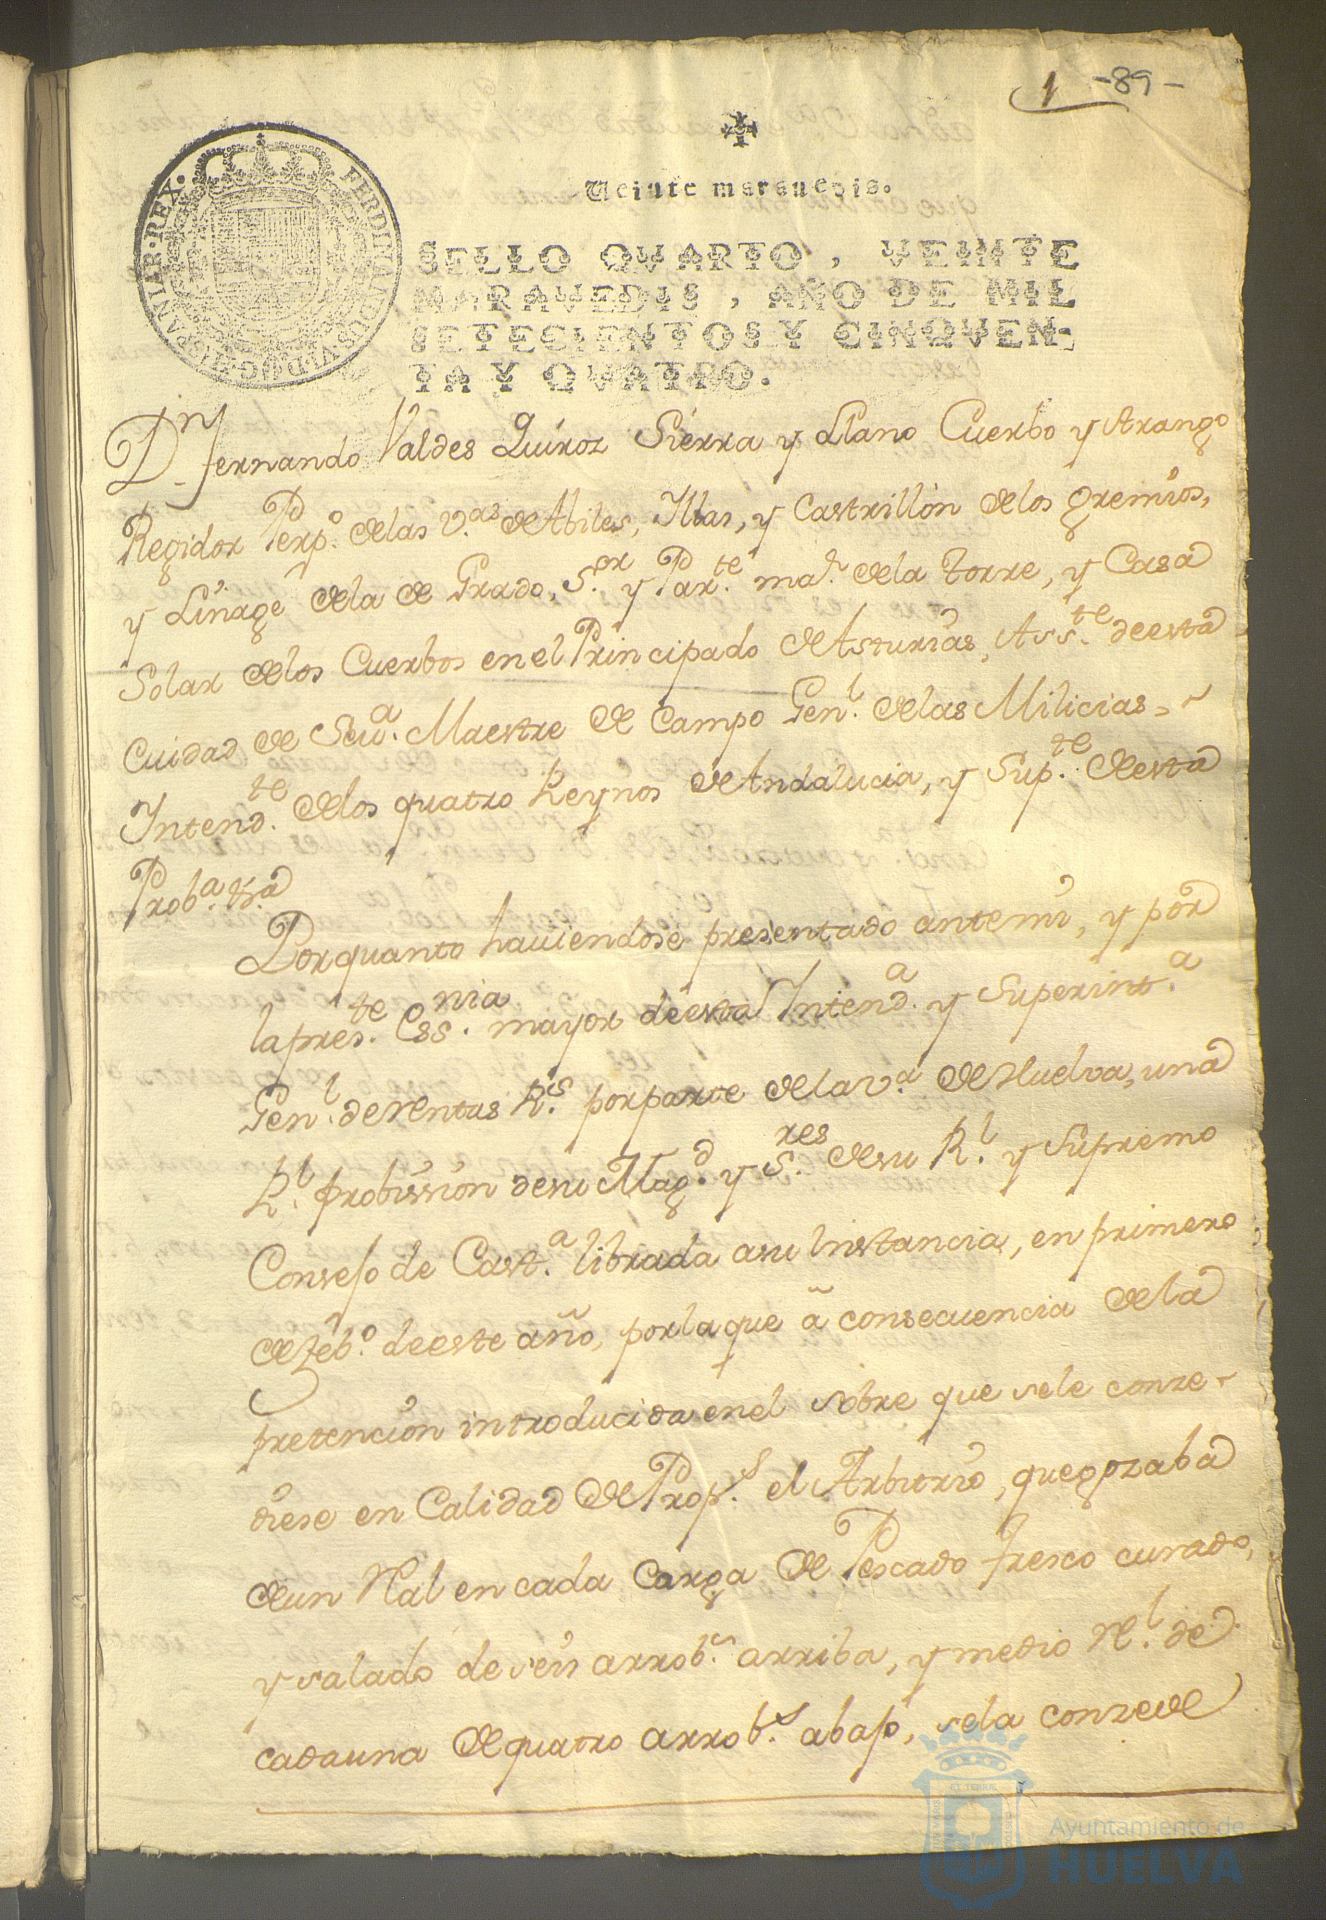 1 -89-
Veinte maravedis.
SELLO QVARTO, VEINTE
MARAVEDIS, AÑO DE MIL
SETECIENTOS Y CINQVEN-
TA Y QVATRO.
FERDINANDUS·VI·D·G·HISPANIAR·REX·
Dn Fernando Valdes Quiroz Sierra y Llano Cuerbo y Arango
Regidor Perp.o delas v.as de Abiles, Illas, y Castrillón delos Gremios,
y Linage dela de Grado, S.or y Par.te ma.r dela Torre, y Casa
Solar delos Cuerbos en el Principado de Asturias, Ass.te de esta
Cuidad de Seu.a Maestre de Campo Gen.l delas Milicias =
Intend.te delos quatro Reynos de Andalucia, y Sup.te de esta
Prob.a &.a
Por quanto hauiendose presentado ante mi, y por
la pres.te Ess.nia mayor de esta Intend.a y Superint.a
Gen.l de rentas R.s por parte dela v.a de Huelva, una
R.l probission de su Mag.d y S.res de su R.l y Supremo
Consejo de Cast.a librada a su Instancia, en primero
de Feb.o de este año, por la que à consecuencia dela
pretencion introducida en el sobre que se le conze-
diese en Calidad de Prop.s el Arbitrio, que gozaba
de un Rl al en cada Carga de Pescado fresco curado,
y salado de seis arrob.s arriba, y medio R.l de
cada una de quatro arrob.s abajo, se la conzede
Ayuntamiento de
HUELVA